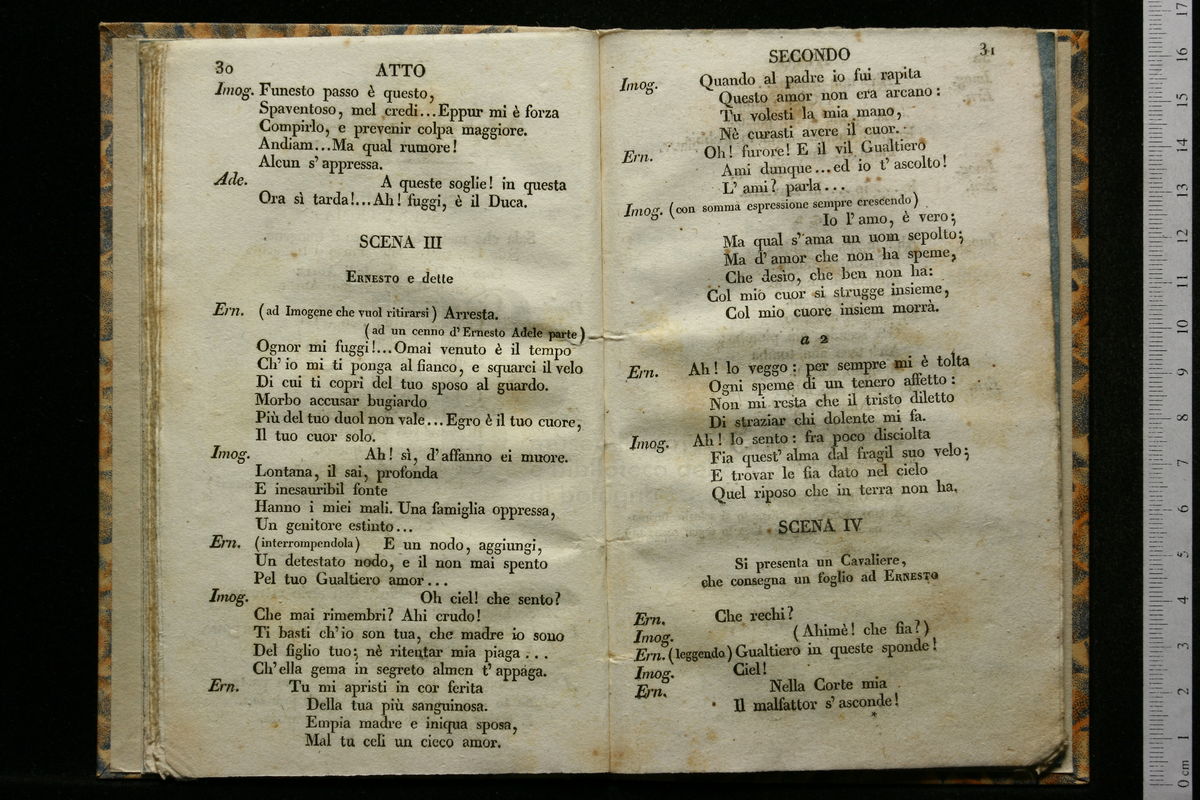 30
ATTO
Imog. Funesto passo è questo,
Spaventoso, mel credi...Eppur mi è forza
Compirlo, e prevenir colpa maggiore.
Andiam...Ma qual rumore!
Alcun s' appressa.
Ade. A queste soglie! in questa
Ora sì tarda!...Ah! fuggi, è il Duca.
SCENA III
ERNESTO e dette
Ern. (ad Imogene che vuol ritirarsi) Arresta.
(ad un cenno d' Ernesto Adele parte)
Ognor mi fuggi!...Omai venuto è il tempo
Ch' io mi ti ponga al fianco, e squarci il velo
Di cui ti copri del tuo sposo al guardo.
Morbo accusar bugiardo
Più del tuo duol non vale...Egro è il tuo cuore,
Il tuo cuor solo.
Imog. Ah! sì, d' affanno ei muore.
Lontana, il sai, profonda
E inesauribil fonte
Hanno i miei mali. Una famiglia oppressa,
Un genitore estinto...
Ern. (interrompendola) E un nodo, aggiungi,
Un detestato nodo, e il non mai spento
Pel tuo Gualtiero amor...
Imog. Oh ciel! che sento?
Che mai rimembri? Ahi crudo!
Ti basti ch' io son tua, che madre io sono
Del figlio tuo; nè ritentar mia piaga...
Ch' ella gema in segreto almen t' appaga.
Ern. Tu mi apristi in cor ferita
Della tua più sanguinosa.
Empia madre e iniqua sposa,
Mal tu celi un cieco amor.
SECONDO
31
Imog. Quando al padre io fui rapita
Questo amor non era arcano:
Tu volesti la mia mano,
Nè curasti avere il cuor.
Ern. Oh! furore! E il vil Gualtiero
Ami dunque...ed io t' ascolto!
L' ami? parla...
Imog. (con somma espressione sempre crescendo)
Io l' amo, è vero;
Ma qual s' ama un uom sepolto;
Ma d' amor che non ha speme,
Che desio, che ben non ha:
Col mio cuor si strugge insieme,
Col mio cuore insiem morrà.
a 2
Ern. Ah! lo veggo: per sempre mi è tolta
Ogni speme di un tenero affetto:
Non mi resta che il tristo diletto
Di straziar chi dolente mi fa.
Imog. Ah! lo sento: fra poco disciolta
Fia quest' alma dal fragil suo velo;
E trovar le fia dato nel cielo
Quel riposo che in terra non ha.
SCENA IV
Si presenta un Cavaliere,
che consegna un foglio ad ERNESTO
Ern. Che rechi?
Imog. (Ahimè! che fia?)
Ern. (leggendo) Gualtiero in queste sponde!
Imog. Ciel!
Ern. Nella Corte mia
Il malfattor s' asconde!
*